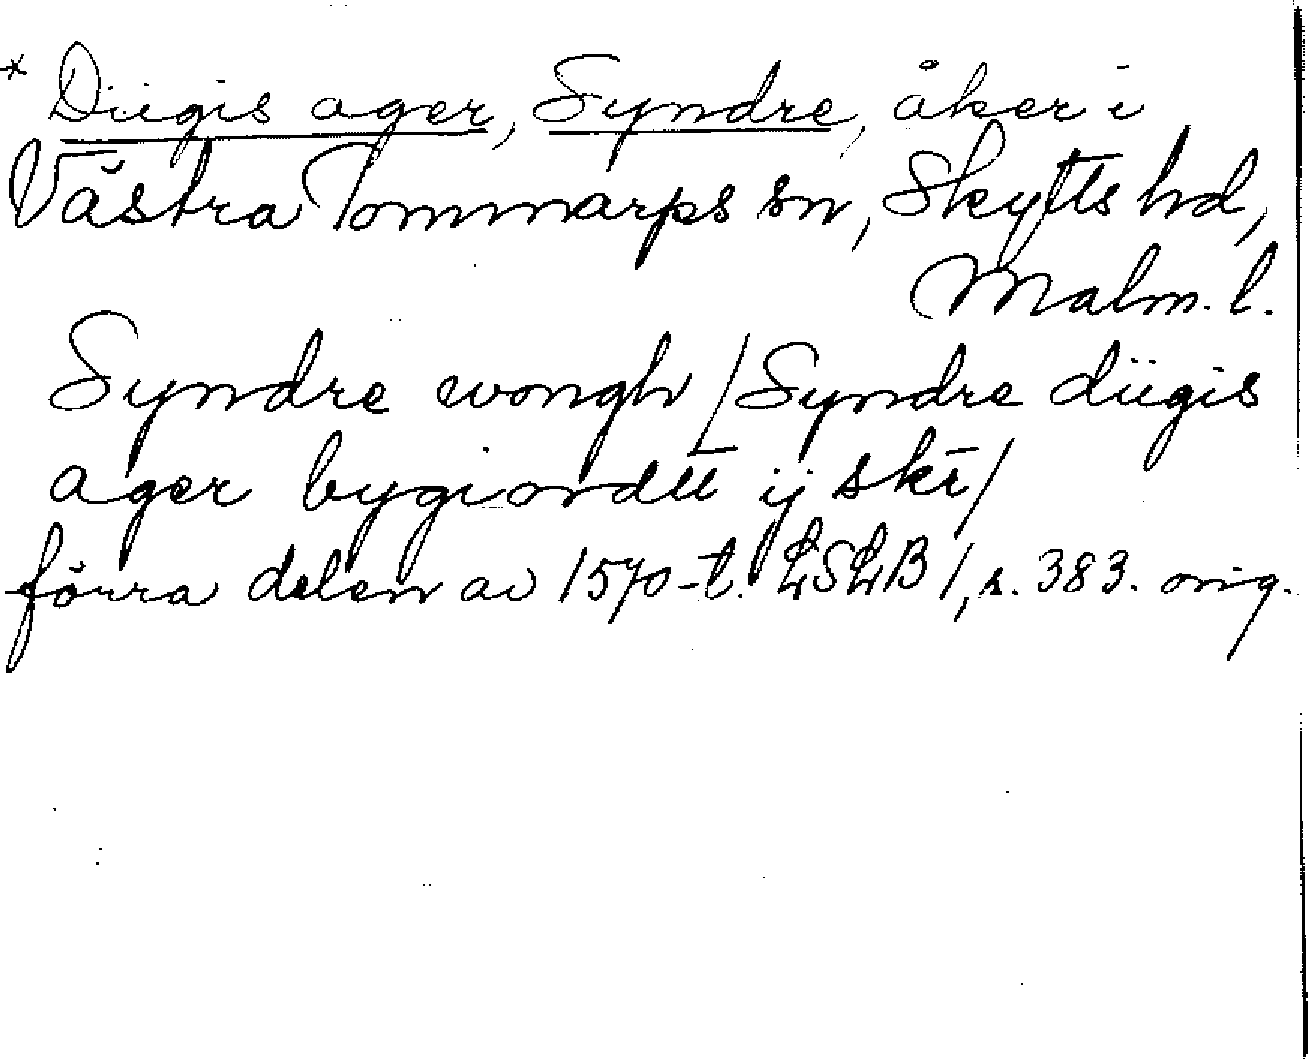 * Düegis ager, Syndre, åker i
Västra Tommarps sn, Skytts hd,
Malm. l.
Syndre wongh / Syndre düegis
ager bygiordtt ij skē /
förra delen av 1570-t. LSLB 1, s. 383. orig.